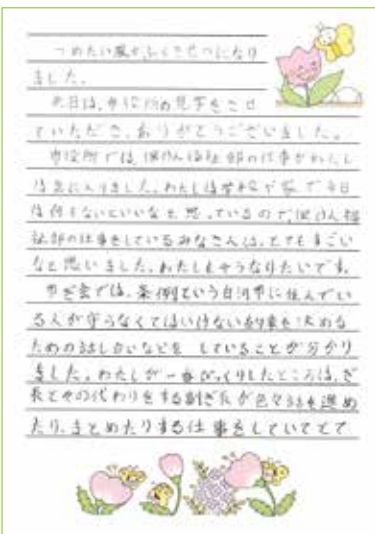 つめたい風がふくきせつになり
ました。
先日は、市役所の見学をさせ
ていただき、ありがとうございました。
市役所では、保けん福祉部の仕事がわたし
は気に入りました。わたしは学校や家で今日
は何もないといいなと思っているので、保けん福
祉部の仕事をしているみなさんは、とてもすごい
なと思いました。わたしもそうなりたいです。
市ぎ会では、条例という白河市に住んでい
る人が守らなくてはいけない約束を決める
ための話し合いなどをしていることが分かり
ました。わたしが一番びっくりしたところは、ぎ
長とその代わりをする副ぎ長が色々話を進め
たり、まとめたりする仕事をしていてとて